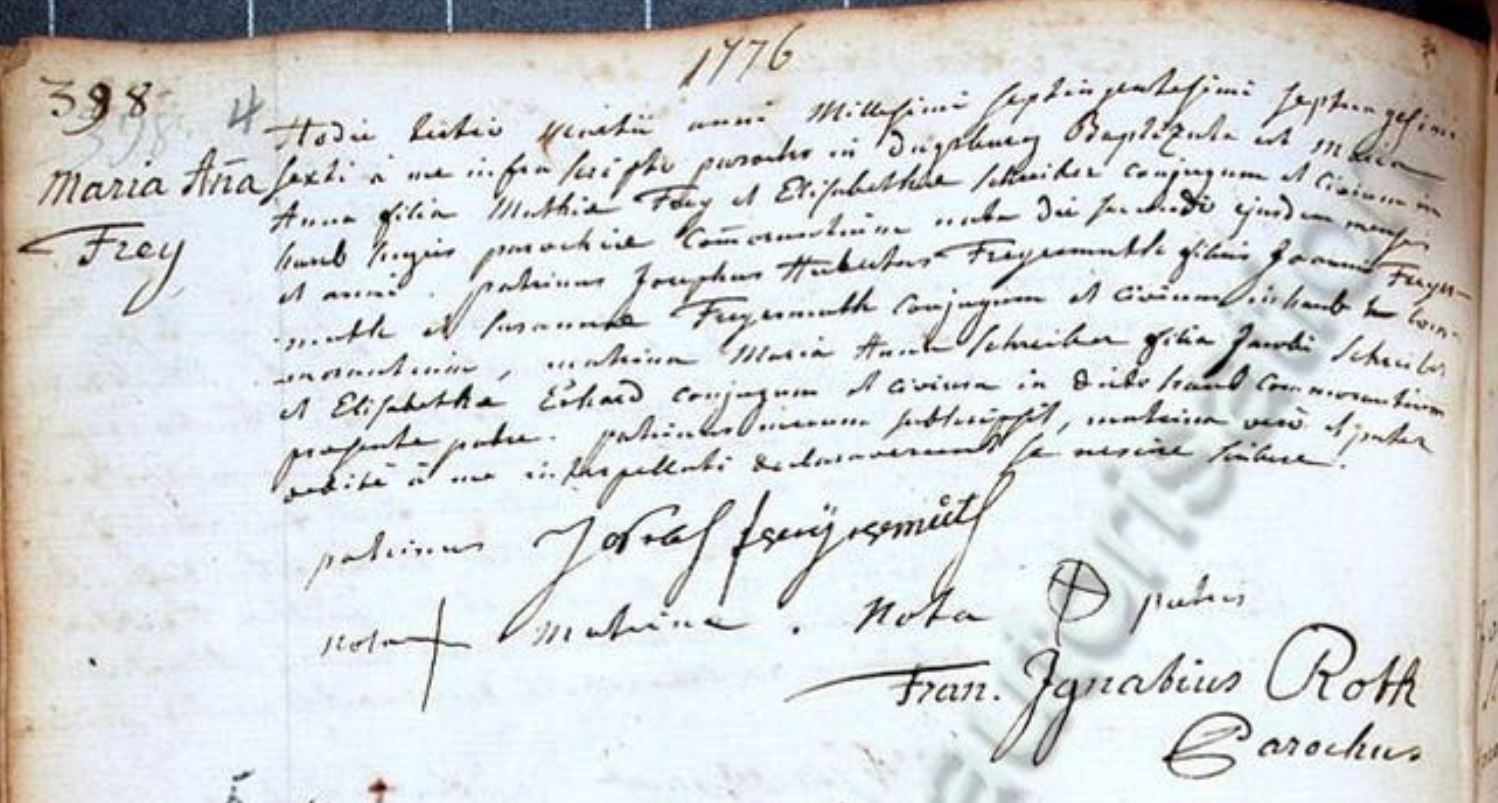 1776
398
4
Maria Aña
Frey
Hodie tertio Martii anni Millesimi septingentesimi septuagesimi
sexti à me infra scripto parocho in Dugsburg Baptizata est Maria
Anna filia Mathiæ Frey et Elisabethae Schreiber conjugum et civium in
haub hujus parochiæ com̄orantium nata die secundo ejusdem mensis
et anni. patrinus Josephus Hubertus Freyermuth filius Joannis Freyer-
muth et Susannae Freyermuth conjugum et civium in haub com-
morantium, matrina Maria Anna Schreiber filia Jacobi Schreiber
et Elisabetha Erhard conjugum et civium in dicto haub commorantium
præsente patre. patrinus mecum subscripsit, matrina verò et pater
ritè à me interpellati declaraverunt se nescire scribere.
patrinus Joseph
nota matrinæ. Nota patris
Fran. Ignatius Roth
Parochus